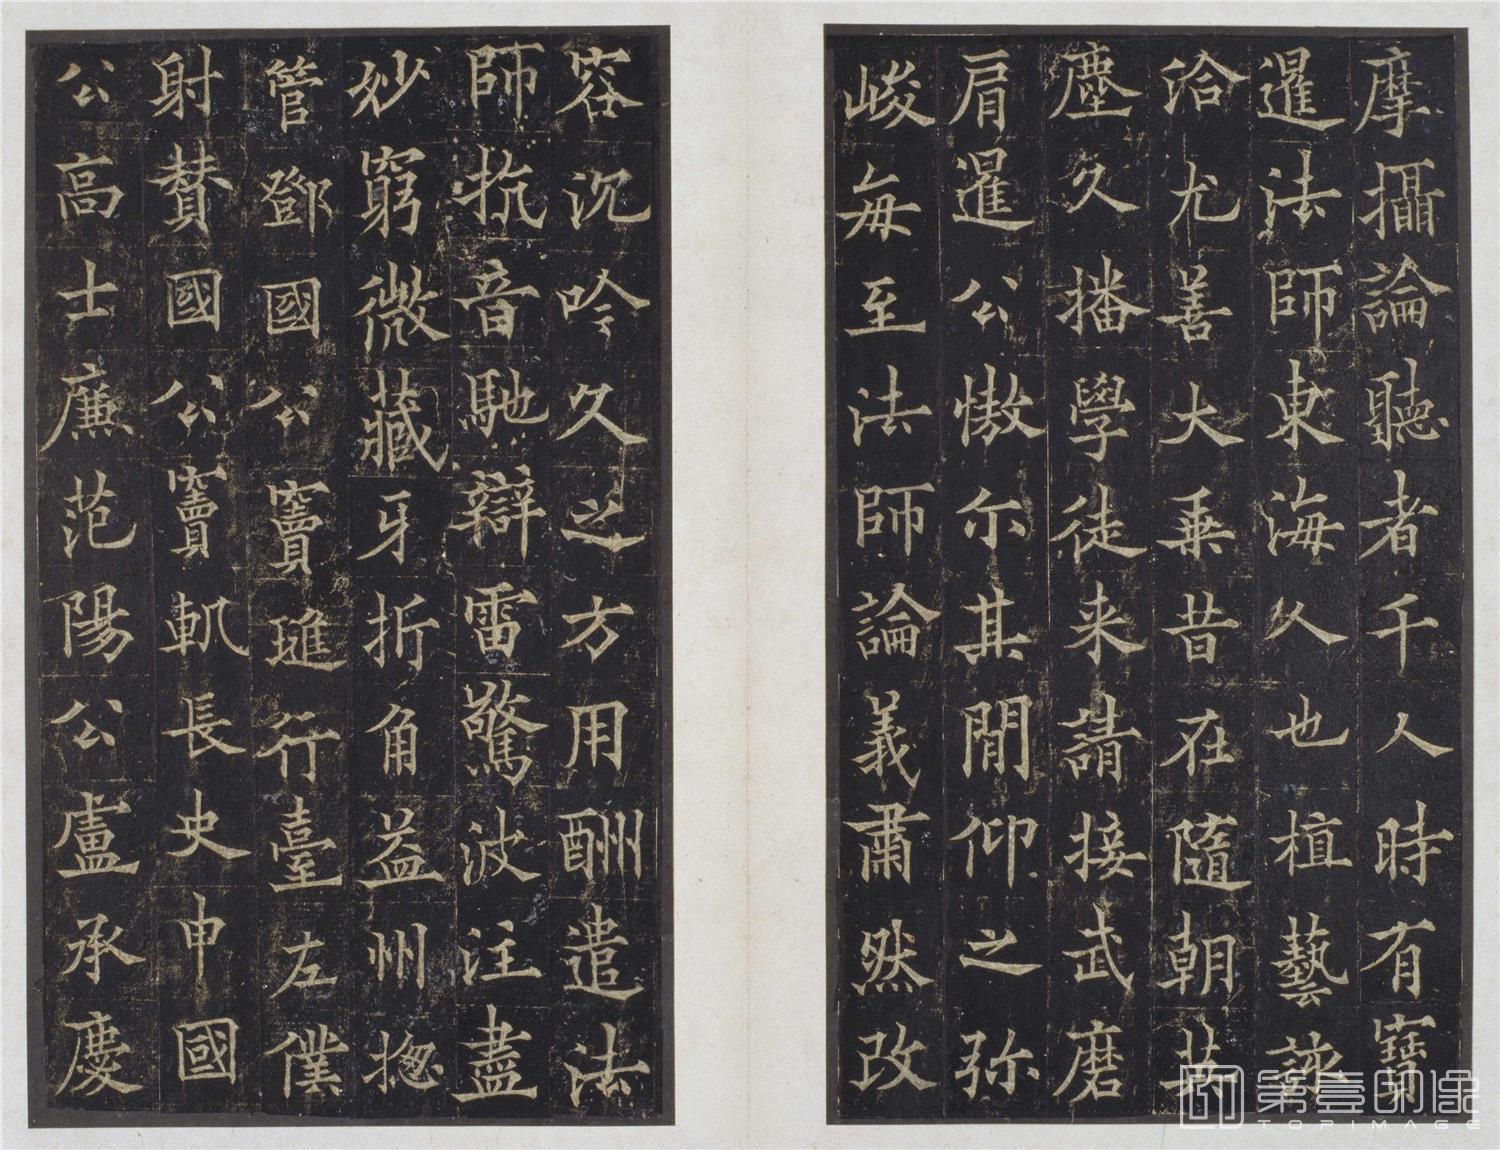 摩攝論聽者千人時有寶
暹法師東海人也植藝該
洽尤善大乗昔在隨朝英
塵久播學徒来請接武磨
肩暹公慠尓其閒仰之弥
峻每至法師論義肅然改
容沉吟久之方用酬遣法
師抗音馳辯雷驚波注盡
妙窮微藏牙折角益州揔
管鄧國公竇璡行臺左僕
射賛國公竇軌長史申國
公高士廉范陽公盧承慶
第壹印像
TOPIMAGE